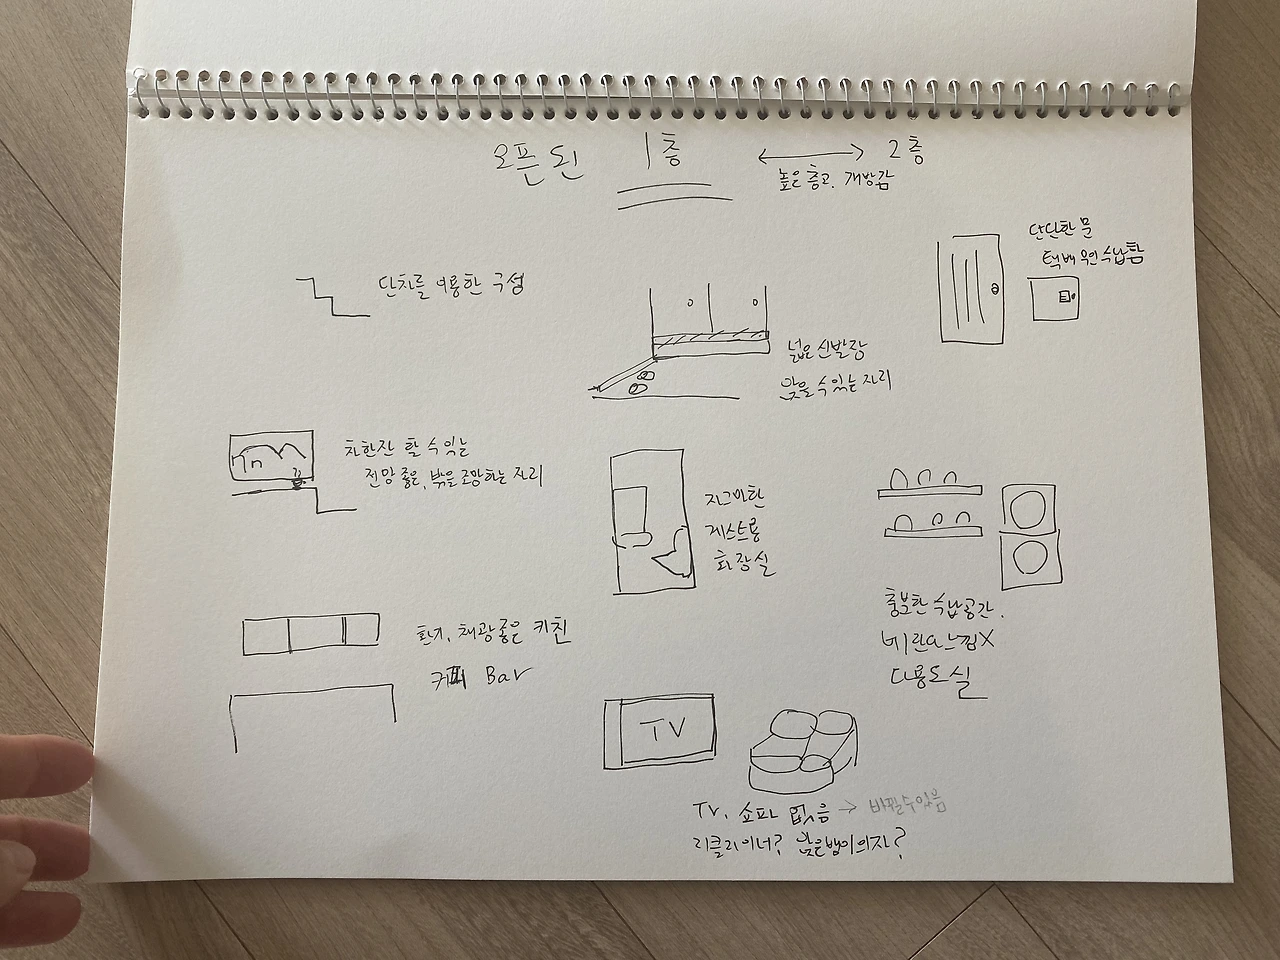 오픈된 1층 ↔ 2층
높은 층고, 개방감
단단한 문
택배 무인수납함
단차를 이용한 구성
넓은 신발장
앉을 수 있는 자리
차한잔 할 수 있는
전망 좋은, 밖을 조망하는 자리
자그마한
게스트용
화장실
충분한 수납공간.
베란다느낌X
다용도실
환기, 채광 좋은 키친
커피 Bar
TV
TV, 쇼파 없음 → 바뀔수있음
리클라이너? 앉은뱅이의자?